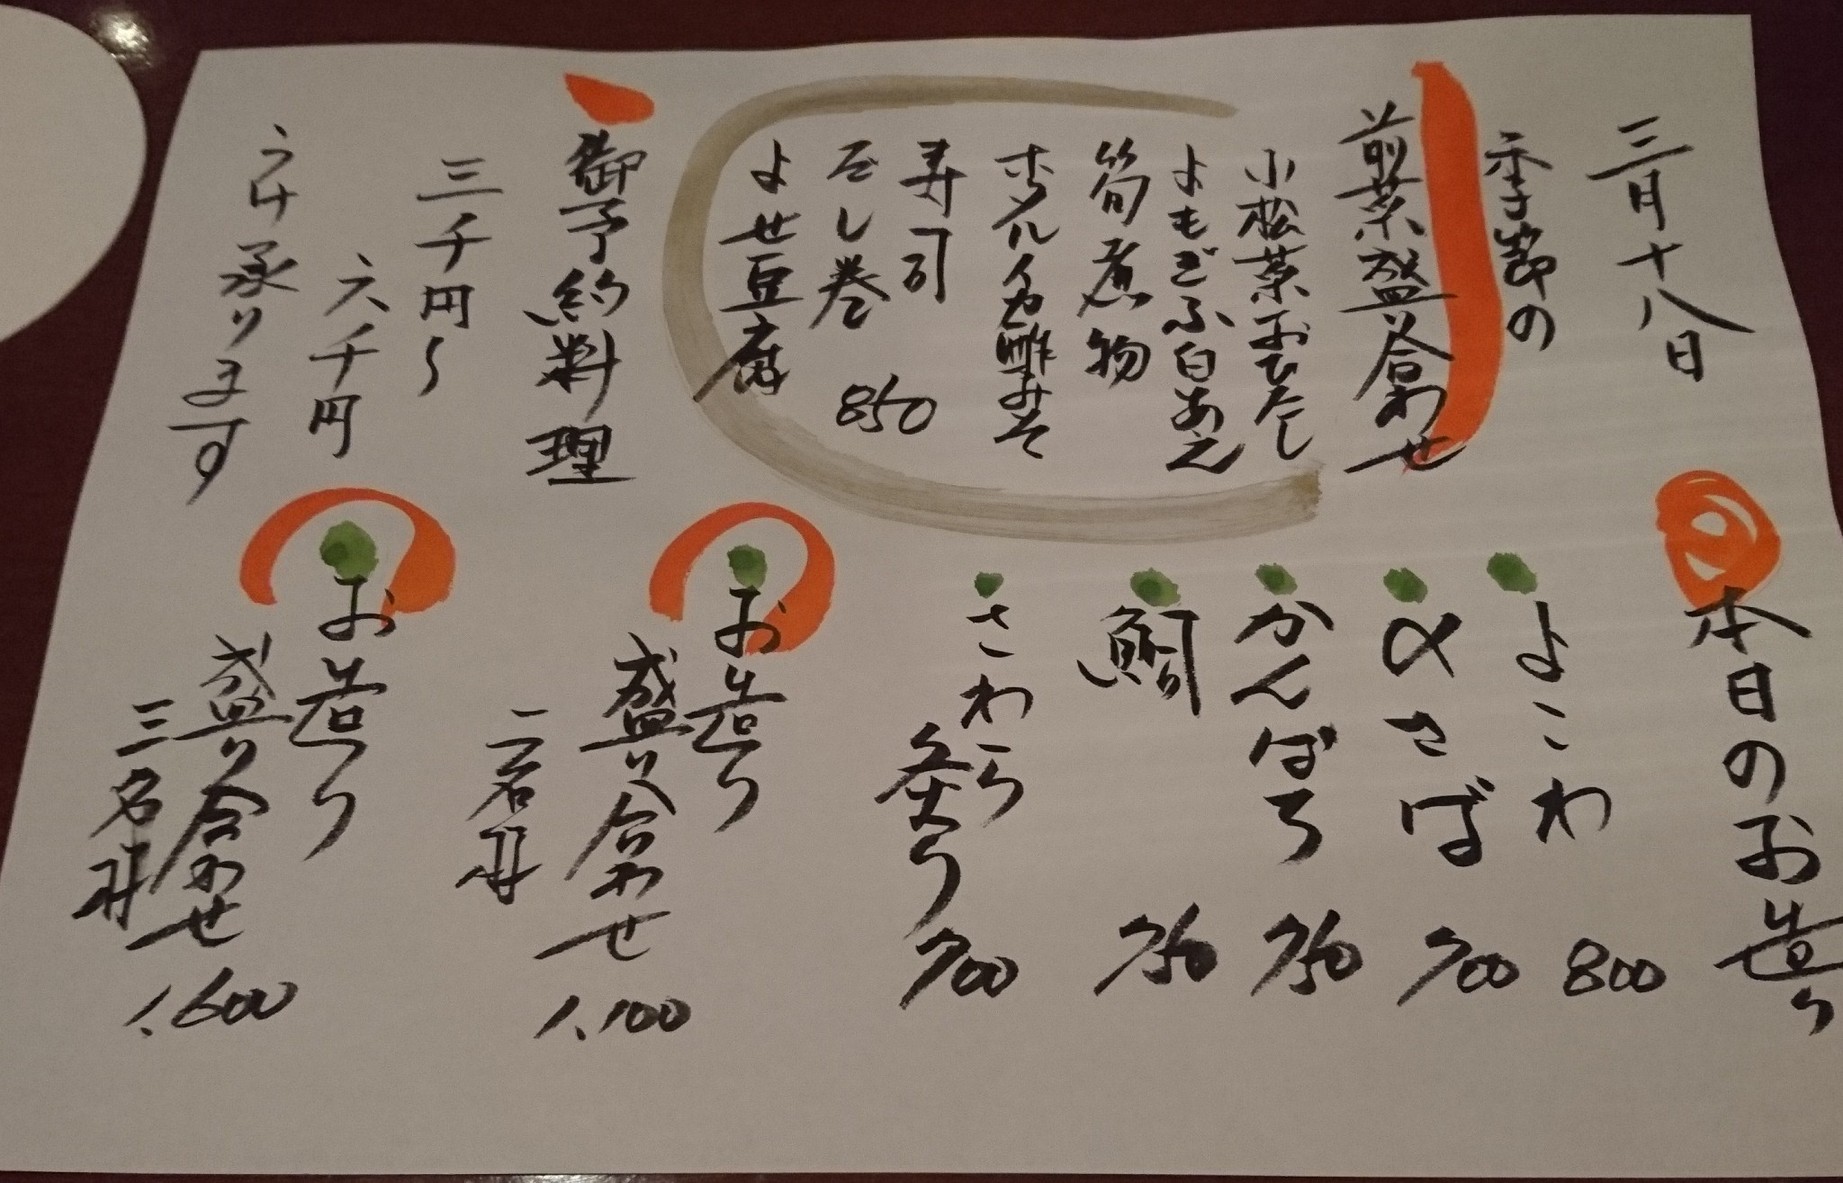 三月十八日
季節の
前菜盛り合わせ
小松菜おひたし
よもぎふ白あえ
筍煮物
ホタルイカ酢みそ
寿司
だし巻 850
よせ豆腐
御予約料理
三千円〜
六千円
うけ承ります
本日のお造り
よこわ 800
〆さば 700
かんぱち 750
鯛 750
さわら
炙り 700
お造り
盛り合わせ 1,100
二名様
お造り
盛り合わせ 1,600
三名様